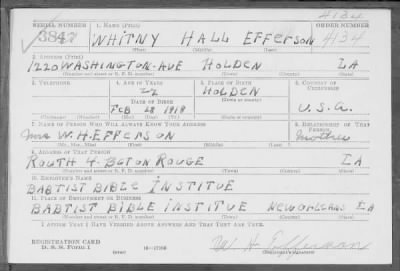 4134
SERIAL NUMBER 1. NAME (Print) ORDER NUMBER
3847 WHITNY HALL EFFERSON 4134
(First) (Middle) (Last)
2. ADDRESS (Print)
1220 WASHINGTON-AVE HOLDEN LA
(Number and street or R. F. D. number) (Town) (County) (State)
3. TELEPHONE 4. AGE IN YEARS 5. PLACE OF BIRTH 6. COUNTRY OF CITIZENSHIP
22 HOLDEN
DATE OF BIRTH (Town or county)
FEB 28 1918 U.S.A.
(Mo.) (Day) (Yr.) (State or country)
7. NAME OF PERSON WHO WILL ALWAYS KNOW YOUR ADDRESS 8. RELATIONSHIP OF THAT PERSON
Mrs W.H.EFFERSON Mother
(Mr., Mrs., Miss) (First) (Middle) (Last)
9. ADDRESS OF THAT PERSON
ROUTH 4. BOTON ROUGE LA
(Number and street or R. F. D. number) (Town) (County) (State)
10. EMPLOYER'S NAME
BABTIST BIBLE INSTITUE
11. PLACE OF EMPLOYMENT OR BUSINESS
BABTIST BIBLE INSTITUE NEW ORLEANS LA
(Number and street or R. F. D. number) (Town) (County) (State)
I AFFIRM THAT I HAVE VERIFIED ABOVE ANSWERS AND THAT THEY ARE TRUE.
REGISTRATION CARD
D. S. S. FORM 1 16-17105
W. H. Efferson